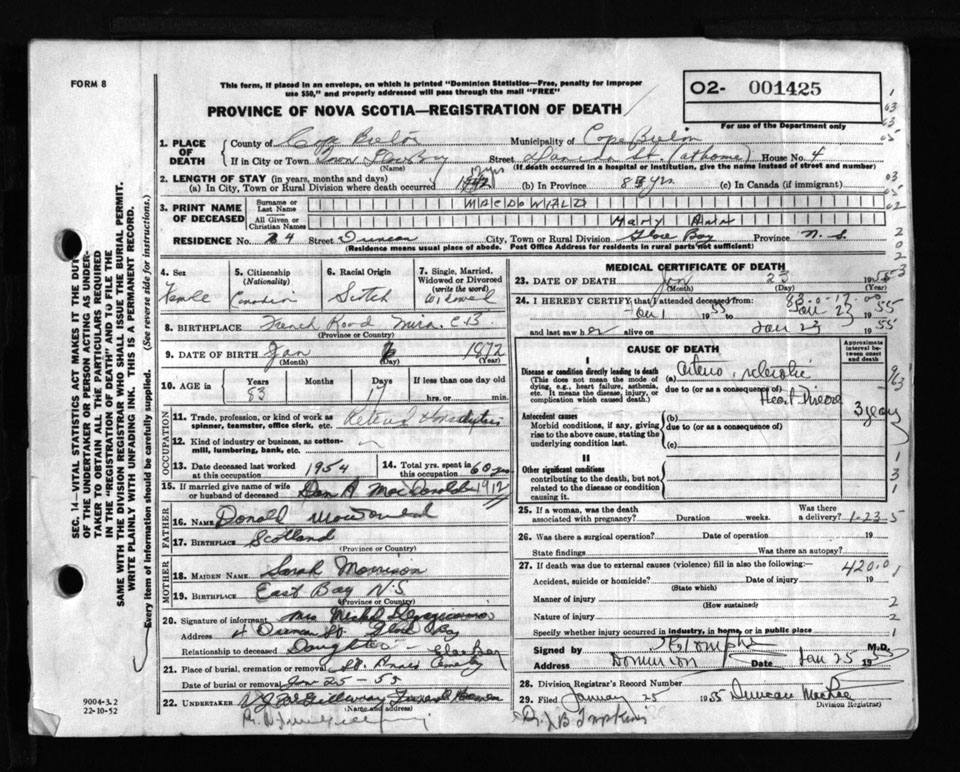 FORM 8
This form, if placed in an envelope, on which is printed "Dominion Statistics—Free, penalty for improper
use $50," and properly addressed will pass through the mail "FREE"
O2- 001425
For use of the Department only
PROVINCE OF NOVA SCOTIA—REGISTRATION OF DEATH
1. PLACE OF DEATH
County of Cape Breton Municipality of Cape Breton
If in City or Town Street (at home) House No. 4
(Name) (If death occurred in a hospital or institution, give the name instead of street and number)
2. LENGTH OF STAY (in years, months and days)
(a) In City, Town or Rural Division where death occurred (b) In Province 83 yrs. (c) In Canada (if immigrant)
3. PRINT NAME OF DECEASED
Surname or Last Name MACDONALD
All Given or Christian Names Mary Ann
RESIDENCE No. 4 Street Duncan City, Town or Rural Division Glace Bay Province N. S.
(Residence means usual place of abode. Post Office Address for residents in rural parts not sufficient)
4. Sex
Female
5. Citizenship (Nationality)
Canadian
6. Racial Origin
Scotch
7. Single, Married, Widowed or Divorced (write the word)
Widowed
8. BIRTHPLACE French Road Mira C.B.
(Province or Country)
9. DATE OF BIRTH Jan 6 1872
(Month) (Day) (Year)
10. AGE in Years Months Days If less than one day old
83 17 hrs. min.
OCCUPATION
11. Trade, profession or kind of work as spinner, teamster, office clerk, etc. Retired Domestic
12. Kind of industry or business, as cotton-mill, lumbering, bank, etc.
13. Date deceased last worked at this occupation 1954
14. Total yrs. spent in this occupation 60 yrs
15. If married give name of wife or husband of deceased Dan A MacDonald 1912
FATHER
16. NAME Donald MacDonald
17. BIRTHPLACE Scotland
(Province or Country)
MOTHER
18. MAIDEN NAME Sarah Morrison
19. BIRTHPLACE East Bay N.S
(Province or Country)
20. Signature of informant Mrs
Address 4 Duncan St Glace Bay
Relationship to deceased Daughter
21. Place of burial, cremation or removal St. Annes Cemetery
Date of burial or removal Jan 25 - 55
22. UNDERTAKER V J McGillivray Funeral Home
(Name and address)
MEDICAL CERTIFICATE OF DEATH
23. DATE OF DEATH Jan 23 1955
(Month) (Day) (Year)
24. I HEREBY CERTIFY that I attended deceased from:
Jan 1 1955 to Jan 23 1955
and last saw her alive on Jan 23 1955
CAUSE OF DEATH
Approximate interval between onset and death
I
Disease or condition directly leading to death
(This does not mean the mode of dying, e.g., heart failure, asthenia, etc. It means the disease, injury, or complication which caused death.)
(a)
due to (or as a consequence of)
Heart Disease
3 years
Antecedent causes
Morbid conditions, if any, giving rise to the above cause, stating the underlying condition last.
(b)
due to (or as a consequence of)
(c)
II
Other significant conditions contributing to the death, but not related to the disease or condition causing it.
25. If a woman, was the death associated with pregnancy? Duration weeks. Was there a delivery? 1-23-5
26. Was there a surgical operation? Date of operation 19
State findings Was there an autopsy?
27. If death was due to external causes (violence) fill in also the following: 420.0
Accident, suicide or homicide? Date of injury 19
(State which)
Manner of injury
(How sustained)
Nature of injury
Specify whether injury occurred in industry, in home, or in public place
Signed by M.D.
Address Dominion Date Jan 25 1955
28. Division Registrar's Record Number
29. Filed January 25 1955 Duncan MacRae
Division Registrar)
Dr. J B Tompkins
SEC. 14—VITAL STATISTICS ACT MAKES IT THE DUTY
OF THE UNDERTAKER OR PERSON ACTING AS UNDER-
TAKER TO OBTAIN ALL THE PARTICULARS REQUIRED
IN THE "REGISTRATION OF DEATH" AND TO FILE THE
SAME WITH THE DIVISION REGISTRAR WHO SHALL ISSUE THE BURIAL PERMIT.
WRITE PLAINLY WITH UNFADING INK. THIS IS A PERMANENT RECORD.
Every item of information should be carefully supplied. (See reverse side for instructions.)
9004-3.2
22-10-52